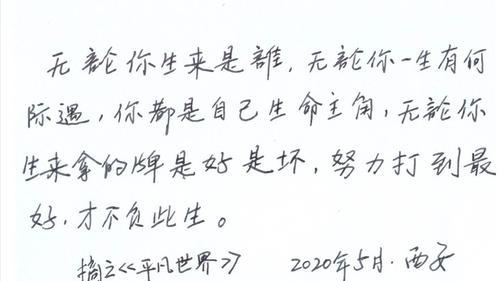 无論你生来是誰，无論你一生有何
际遇，你都是自己生命主角，无論你
生来拿的牌是好是坏，努力打到最
好，才不负此生。
摘之《平凡世界》 2020年5月.西安